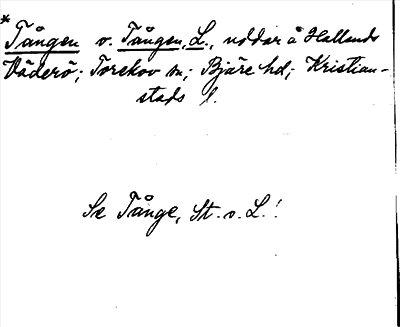 *
Tången o. Tången, L., uddar å Hallands
Väderö; Torekov sn; Bjäre hd; Kristian-
stads l.
Se Tånge, St. o. L.!